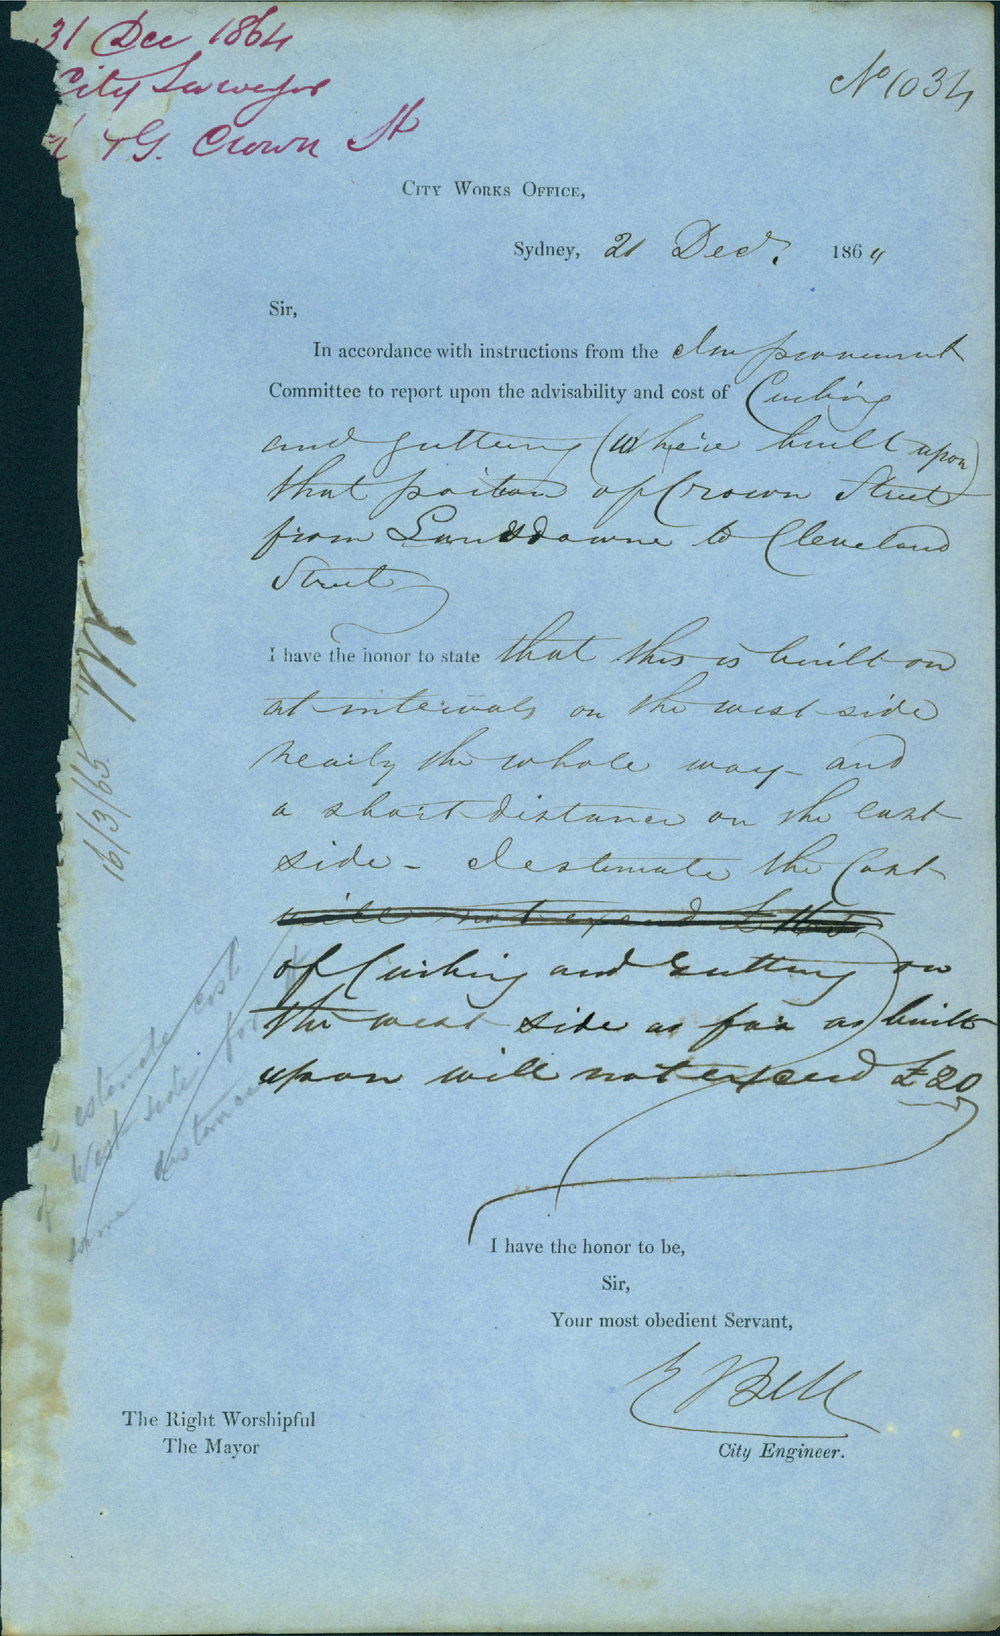 31 Dec 1864
City Surveyor
& G. Crown St
No 1034
City Works Office,
Sydney, 21 Decr. 1864
Sir,
In accordance with instructions from the Improvement
Committee to report upon the advisability and cost of Curbing
and guttering (where built upon)
that portion of Crown Street
from Lansdowne to Cleveland
Street
I have the honor to state that this is built on
at intervals on the west side
nearly the whole way - and
a short distance on the east
side - I estimate the Cost
will not exceed £
of Curbing and Guttering on
the west side as far as built
upon will not exceed £20
16/3/65
estimate cost
of West side for
same distance
I have the honor to be,
Sir,
Your most obedient Servant,
E Bell
City Engineer.
The Right Worshipful
The Mayor